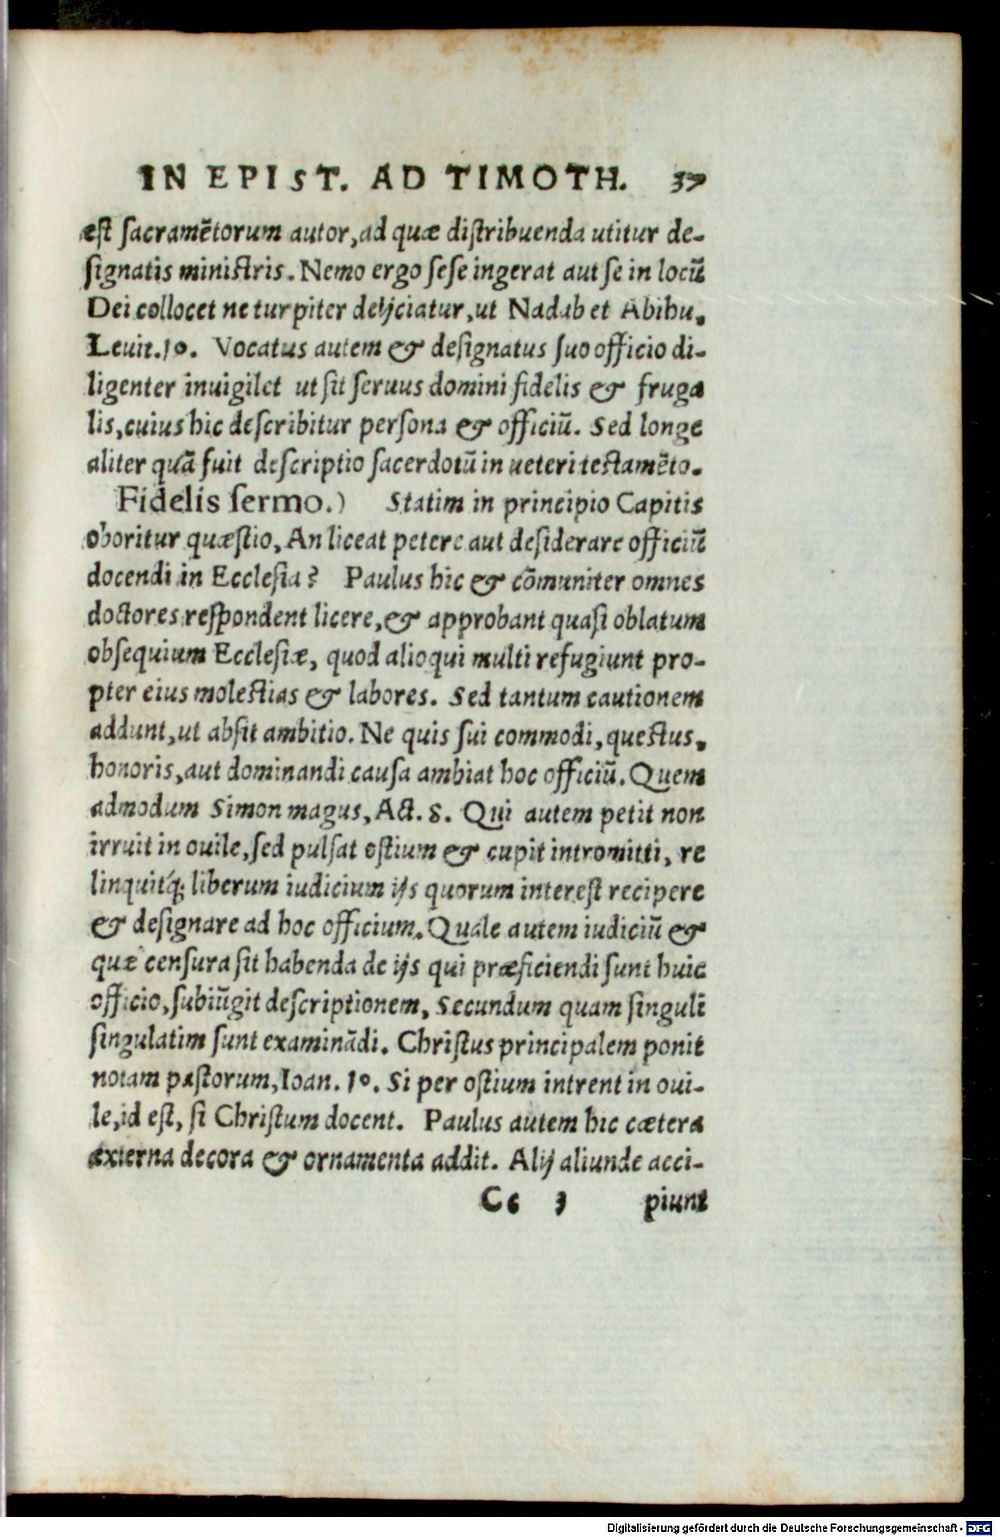 IN EPIST. AD TIMOTH. 37
est sacramẽtorum autor, ad quæ distribuenda utitur de-
signatis ministris. Nemo ergo sese ingerat aut se in locũ
Dei collocet ne turpiter deijciatur, ut Nadab et Abihu,
Leuit. 10. Vocatus autem & designatus suo officio di-
ligenter inuigilet ut sit seruus domini fidelis & fruga
lis, cuius hic describitur persona & officiũ. Sed longe
aliter quã fuit descriptio sacerdotũ in ueteri testamẽto.
Fidelis sermo.) Statim in principio Capitis
oboritur quæstio, An liceat petere aut desiderare officiũ
docendi in Ecclesia? Paulus hic & cõmuniter omnes
doctores respondent licere, & approbant quasi oblatum
obsequium Ecclesiæ, quod alioqui multi refugiunt pro-
pter eius molestias & labores. Sed tantum cautionem
addunt, ut absit ambitio. Ne quis sui commodi, questus,
honoris, aut dominandi causa ambiat hoc officiũ. Quem
admodum Simon magus, Act. 8. Qui autem petit non
irruit in ouile, sed pulsat ostium & cupit intromitti, re
linquitq́; liberum iudicium ijs quorum interest recipere
& designare ad hoc officium. Quale autem iudiciũ &
quæ censura sit habenda de ijs qui præficiendi sunt huic
officio, subiũgit descriptionem, Secundum quam singuli
singulatim sunt examinãdi. Christus principalem ponit
notam pastorum, Ioan. 10. Si per ostium intrent in oui-
le, id est, si Christum docent. Paulus autem hic cætera
externa decora & ornamenta addit. Alij aliunde acci-
Cc 3 piunt
Digitalisierung gefördert durch die Deutsche Forschungsgemeinschaft - DFG